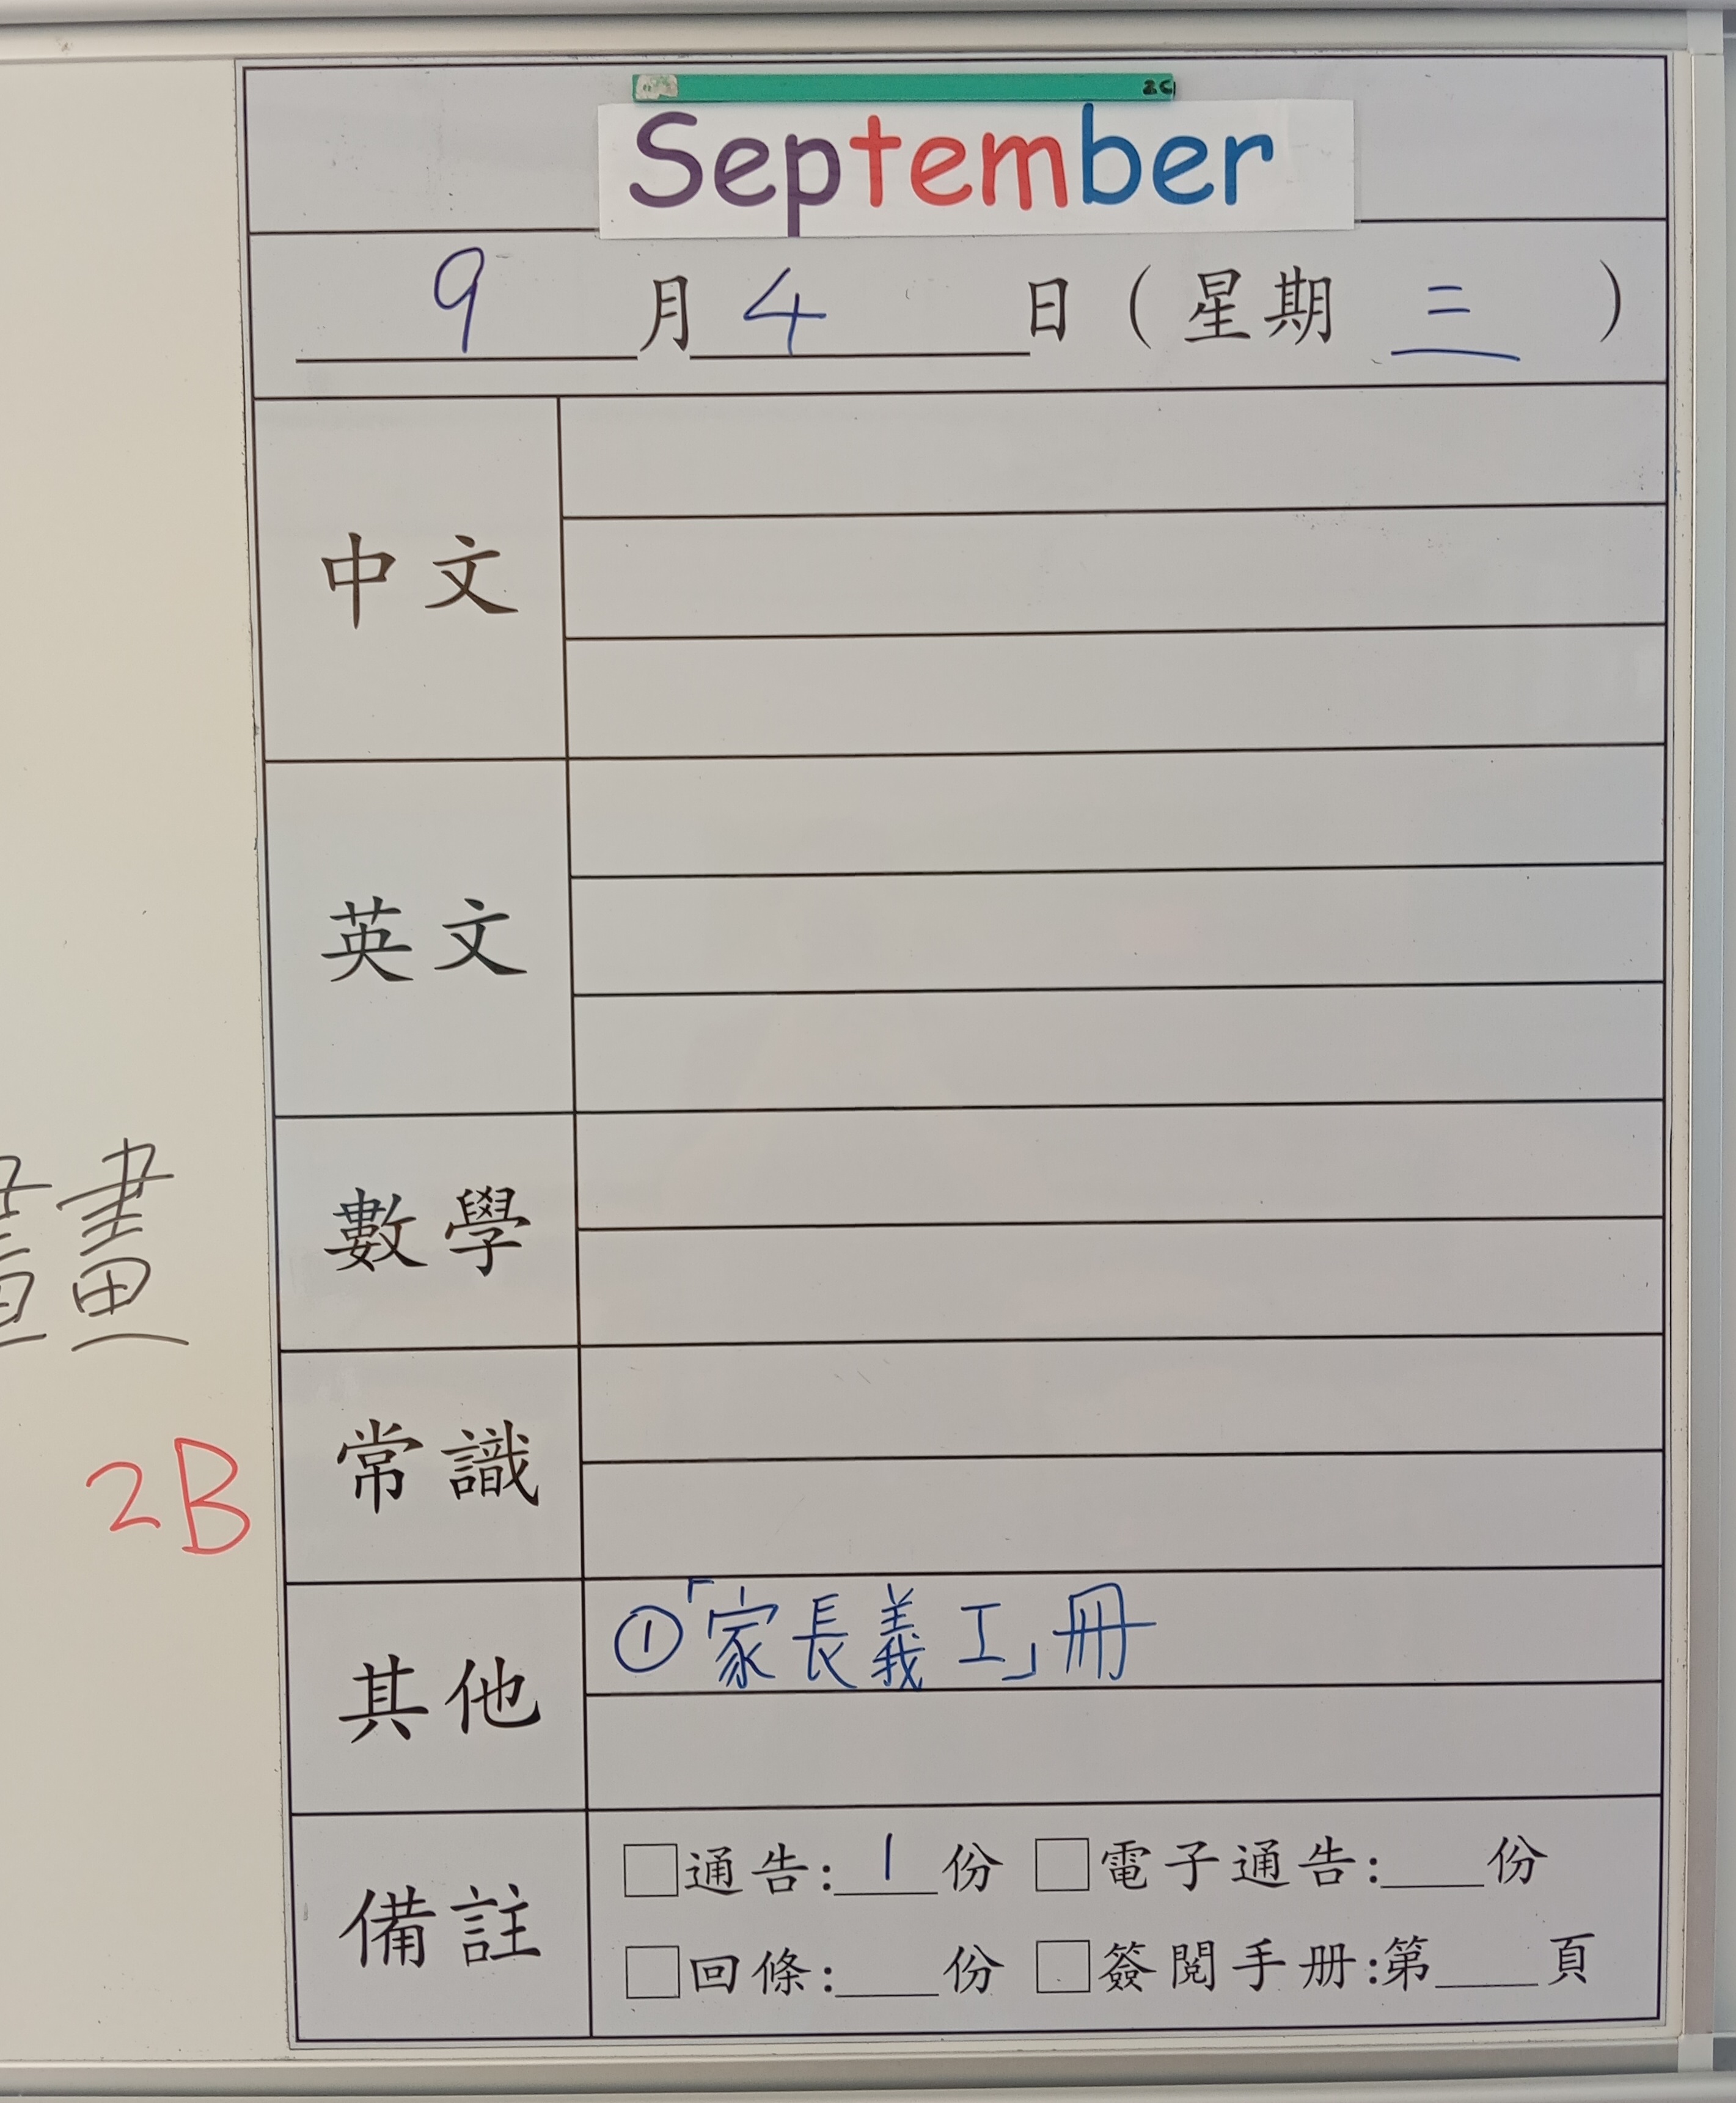 2C
September
9月4日(星期三)
中文
英文
數學
畫
常識
2B
其他 ①「家長義工」冊
備註 □通告:1份 □電子通告:___份
□回條:___份 □簽閱手册:第___頁